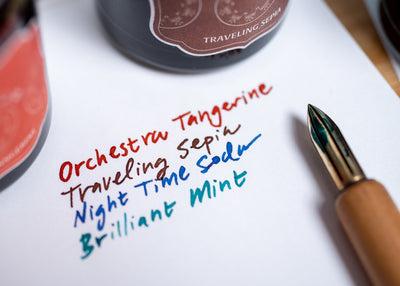 TRAVELING SEPIA
Orchestra Tangerine
Traveling Sepia
Night Time Soda
Brilliant Mint